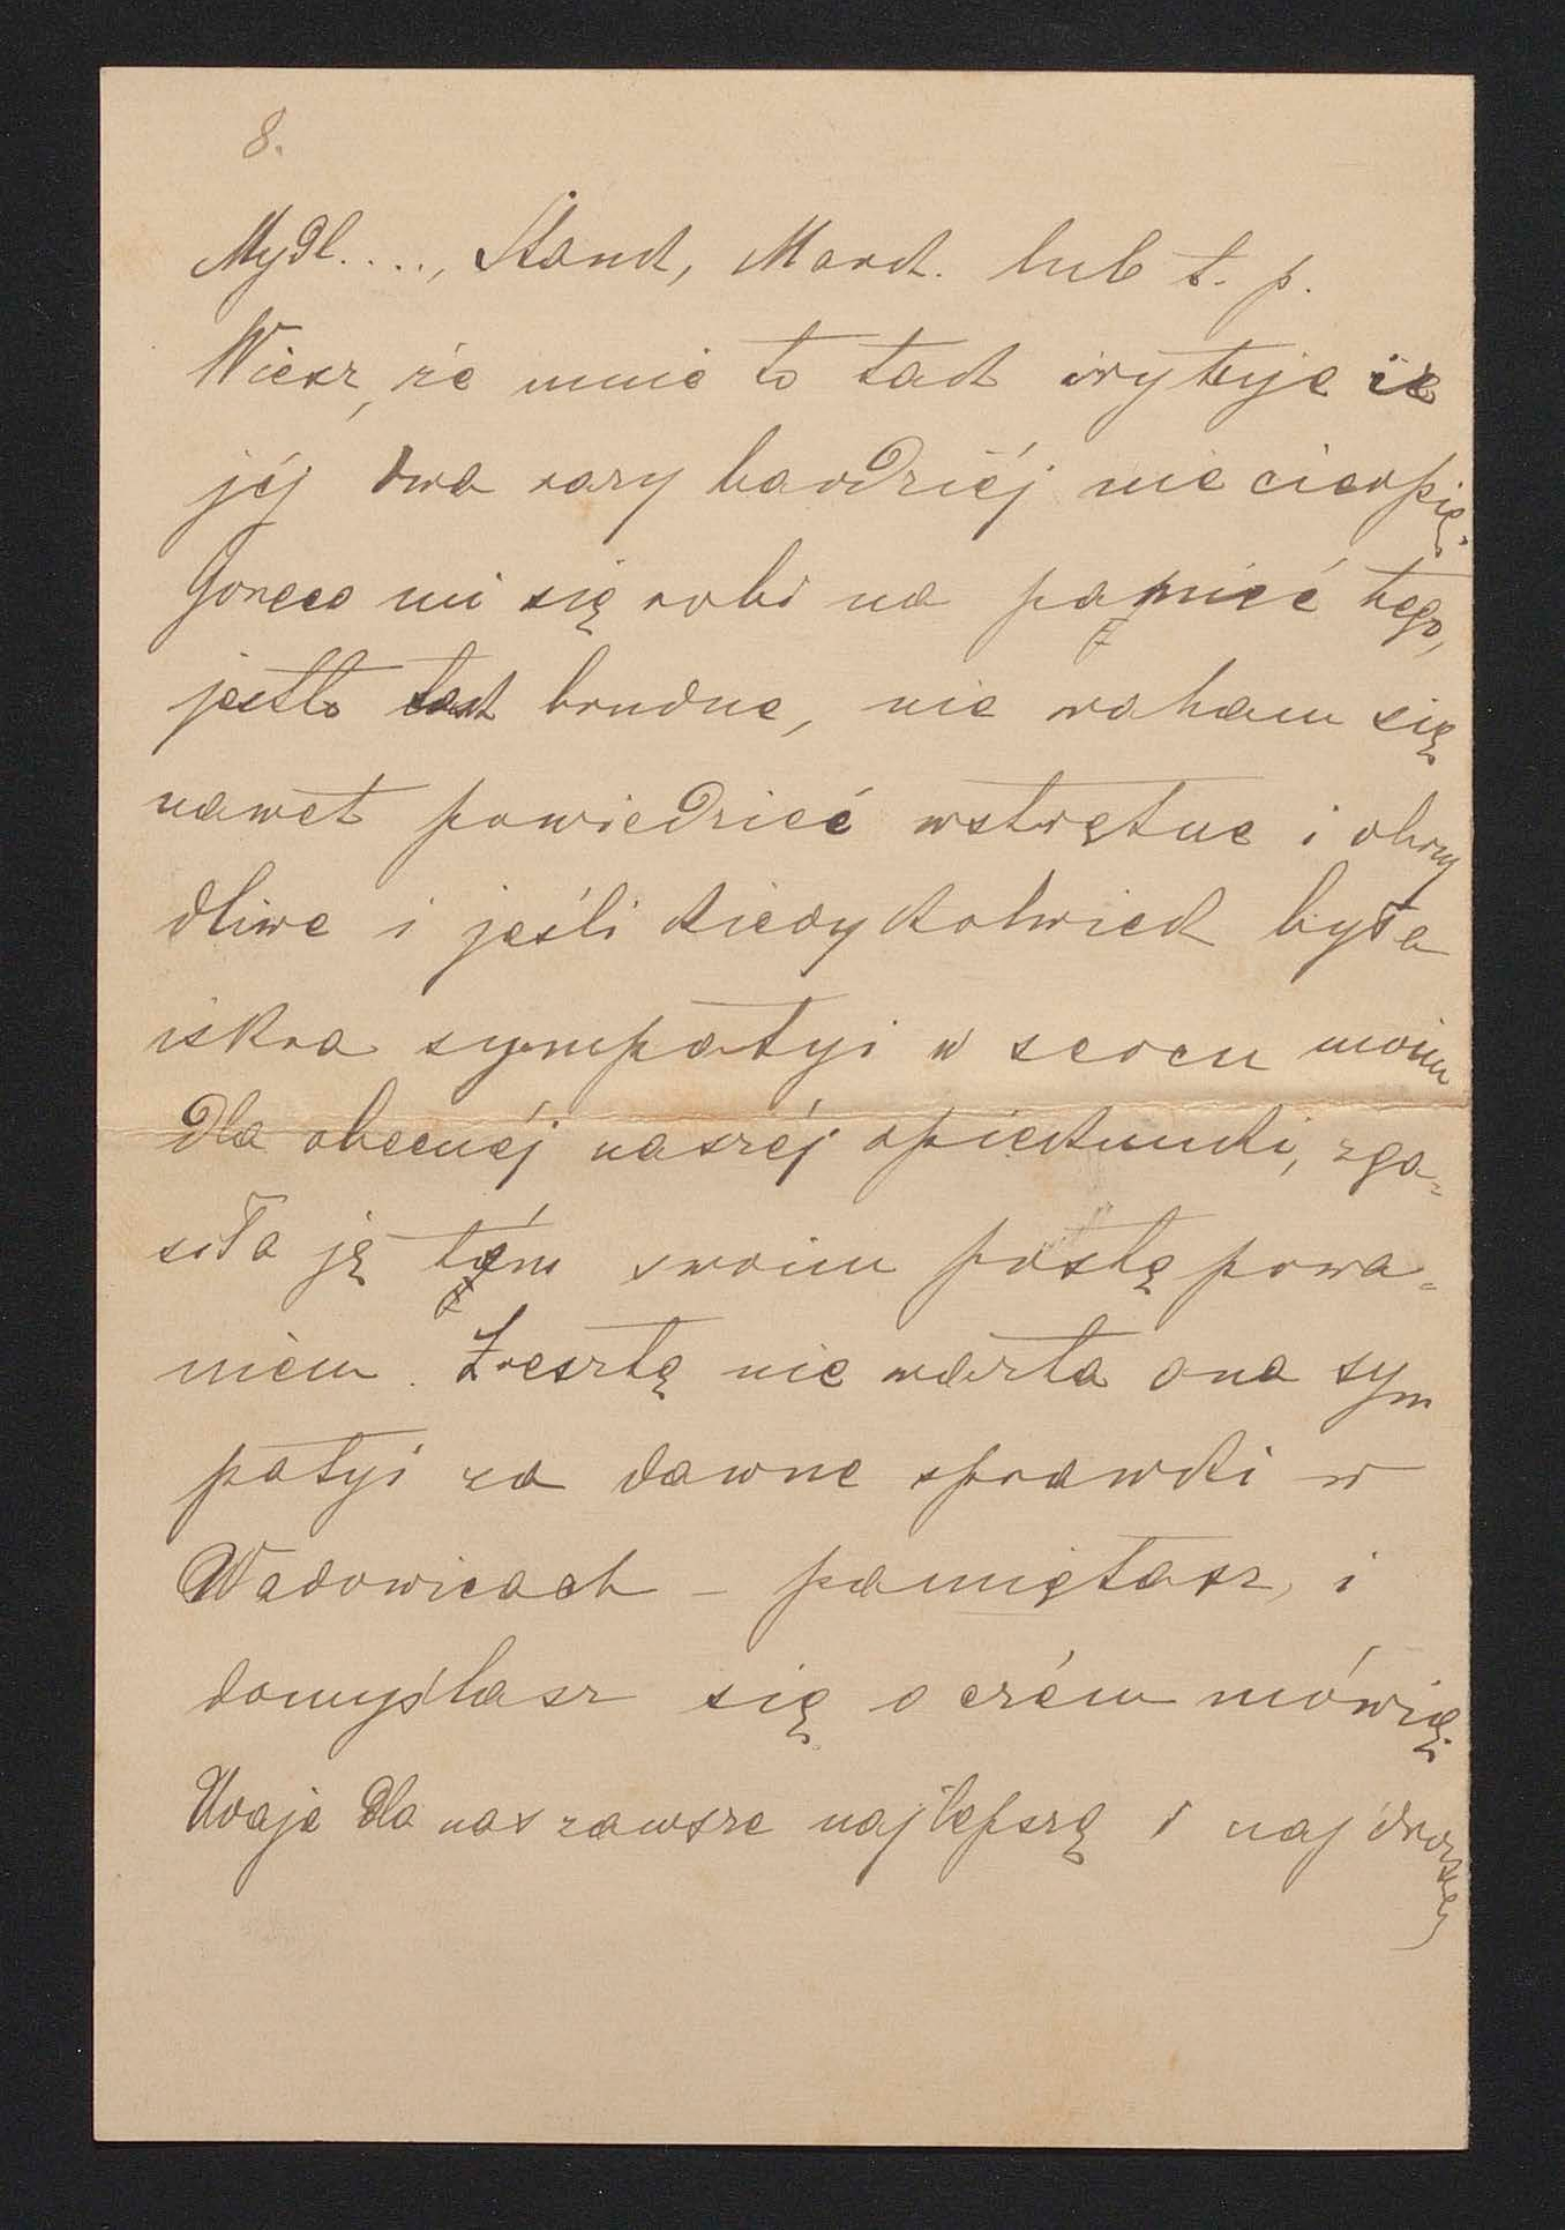 8.
Mydl...., Stand, Mard. lub t. p.
Wiesz, że mnie to tak irytuje że
jéj dwa razy bardziéj nie cierpię.
Gorąco mi się robi na pamięć tego,
jestto tak brudne, nie waham się
nawet powiedzieć wstrętne i obrzy
dliwe i jeśli kiedykolwiek była
iskra sympatyi w sercu moim
dla obecnéj naszéj opiekunki, zga-
siła ją tém swoim postępowa-
niem. Zresztą nie warta ona sym
patyi za dawne sprawki w
Wadowicach – pamiętasz, i
domyślasz się o czém mówię.
Udaje dla nas zawsze najlepszą i najdroższą